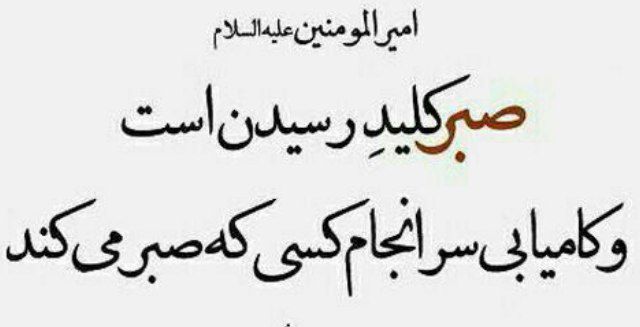 امیرالمومنین علیه‌السلام
صبر کلیدِ رسیدن است
و کامیابی سرانجام کسی که صبر می‌کند